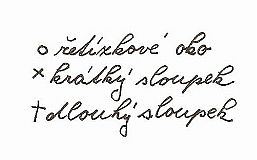 o řetízkové oko
× krátký sloupek
† dlouhý sloupek